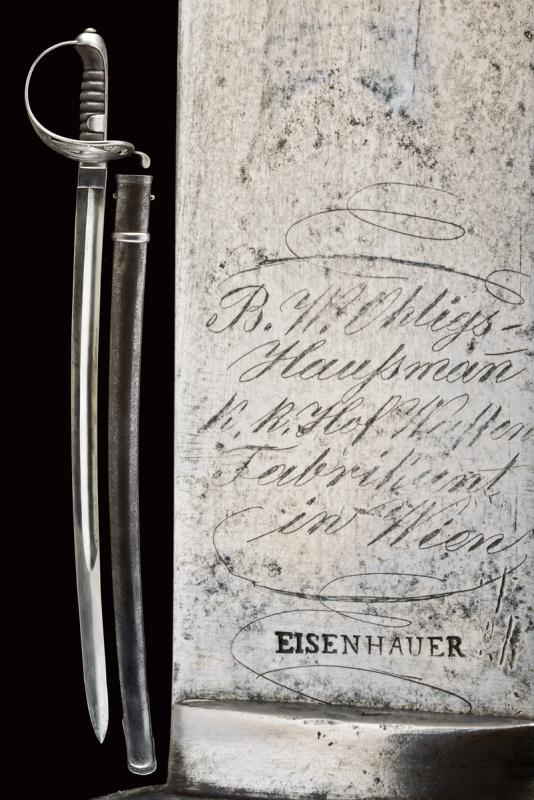 B. W. Ohligs-
Haußman̄
K. K. Hof Waffen
Fabrikant
in Wien
EISENHAUER